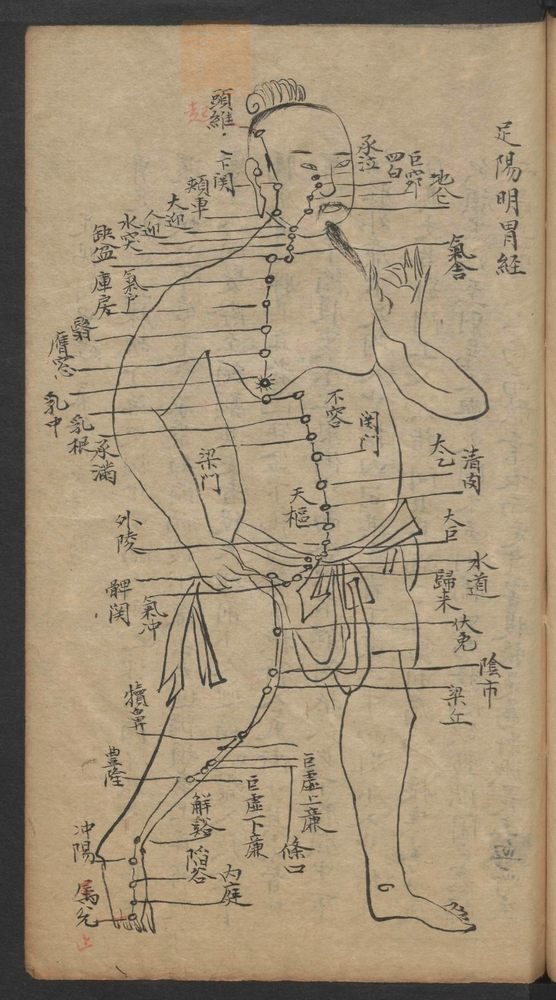 足陽明胃経
頭維
起
下関
頬車
大迎
人迎
水突
缺盆
氣戶
庫房
膺窓
乳中
乳根
承滿
梁门
外陵
髀関
氣冲
犢鼻
豊隆
解谿
陷谷
内庭
冲陽
厲兌
止
承泣
四白
巨窌
地仓
氣舎
不容
関门
太乙
滑肉
天樞
大巨
水道
歸来
伏免
陰市
梁丘
巨虛上亷
巨虛下亷
條口